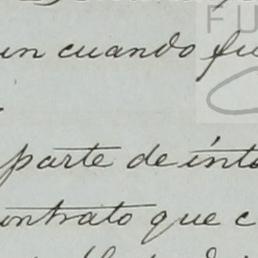 FU
un cuando fu
parte de inte
ontrato que c